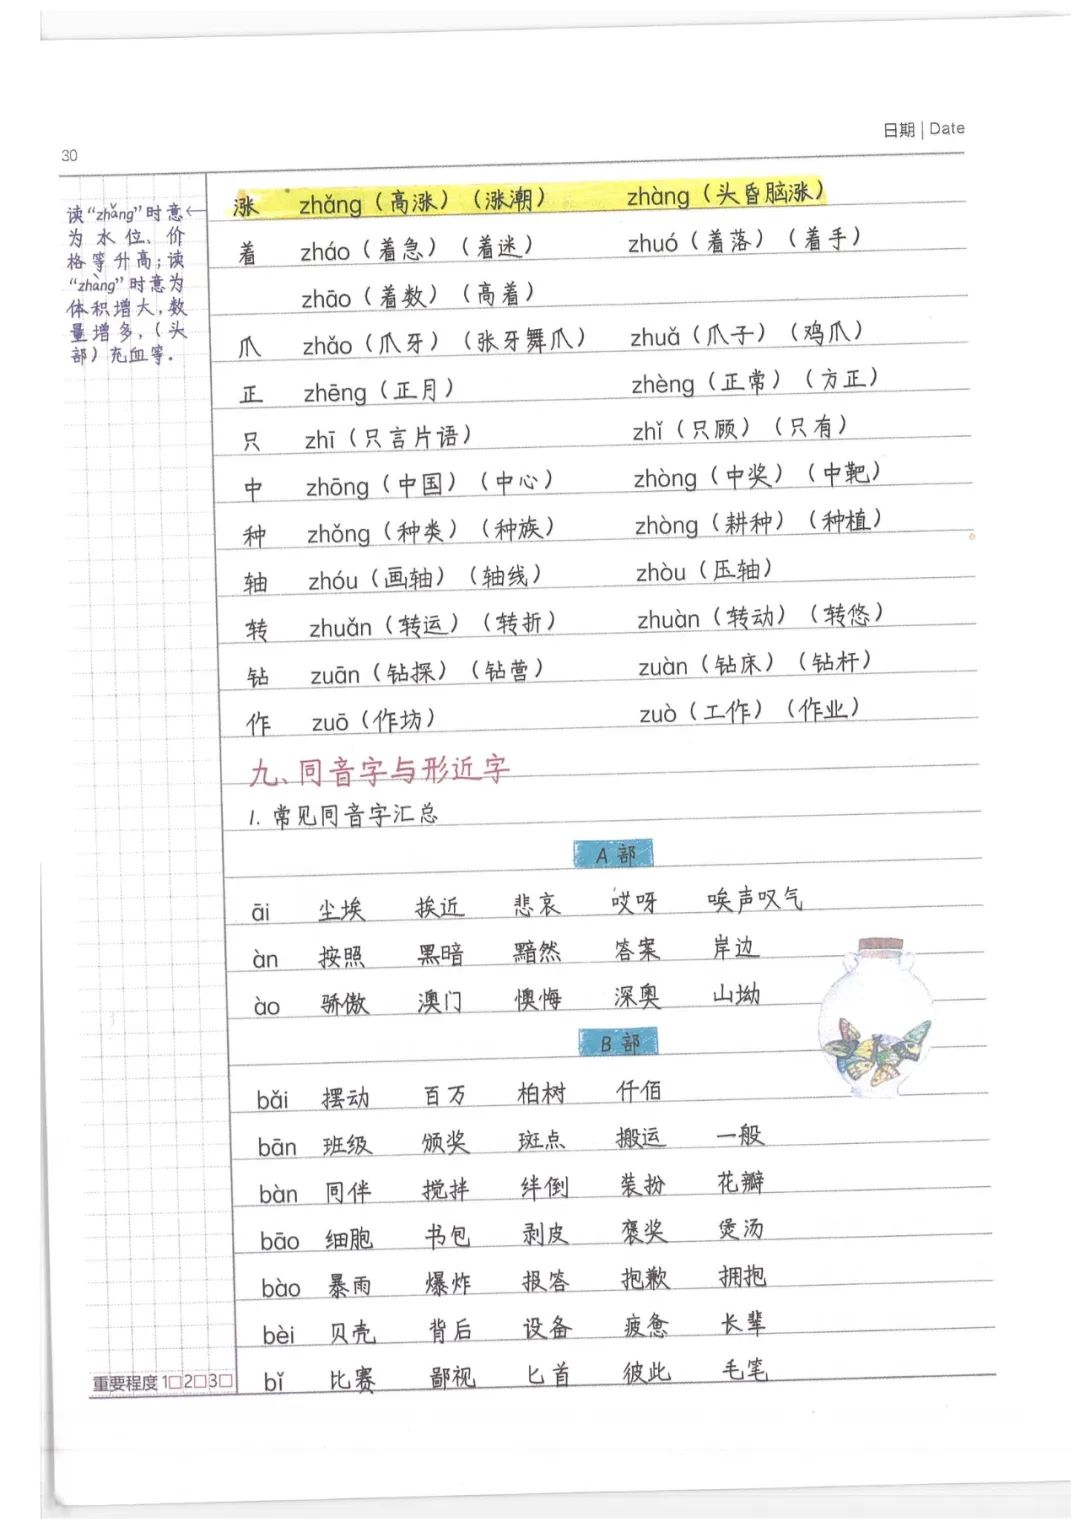 日期 | Date
30
读“zhǎng”时意
为水位、价
格等升高;读
“zhàng”时意为
体积增大,数
量增多,(头
部)充血等.
涨 zhǎng(高涨)(涨潮) zhàng(头昏脑涨)
着 zháo(着急)(着迷) zhuó(着落)(着手)
zhāo(着数)(高着)
爪 zhǎo(爪牙)(张牙舞爪) zhuǎ(爪子)(鸡爪)
正 zhēng(正月) zhèng(正常)(方正)
只 zhī(只言片语) zhǐ(只顾)(只有)
中 zhōng(中国)(中心) zhòng(中奖)(中靶)
种 zhǒng(种类)(种族) zhòng(耕种)(种植)
轴 zhóu(画轴)(轴线) zhòu(压轴)
转 zhuǎn(转运)(转折) zhuàn(转动)(转悠)
钻 zuān(钻探)(钻营) zuàn(钻床)(钻杆)
作 zuō(作坊) zuò(工作)(作业)
九、同音字与形近字
1. 常见同音字汇总
A 部
āi 尘埃 挨近 悲哀 哎呀 唉声叹气
àn 按照 黑暗 黯然 答案 岸边
ào 骄傲 澳门 懊悔 深奥 山坳
B 部
bǎi 摆动 百万 柏树 仟佰
bān 班级 颁奖 斑点 搬运 一般
bàn 同伴 搅拌 绊倒 装扮 花瓣
bāo 细胞 书包 剥皮 褒奖 煲汤
bào 暴雨 爆炸 报答 抱歉 拥抱
bèi 贝壳 背后 设备 疲惫 长辈
bǐ 比赛 鄙视 匕首 彼此 毛笔
重要程度 1□2□3□